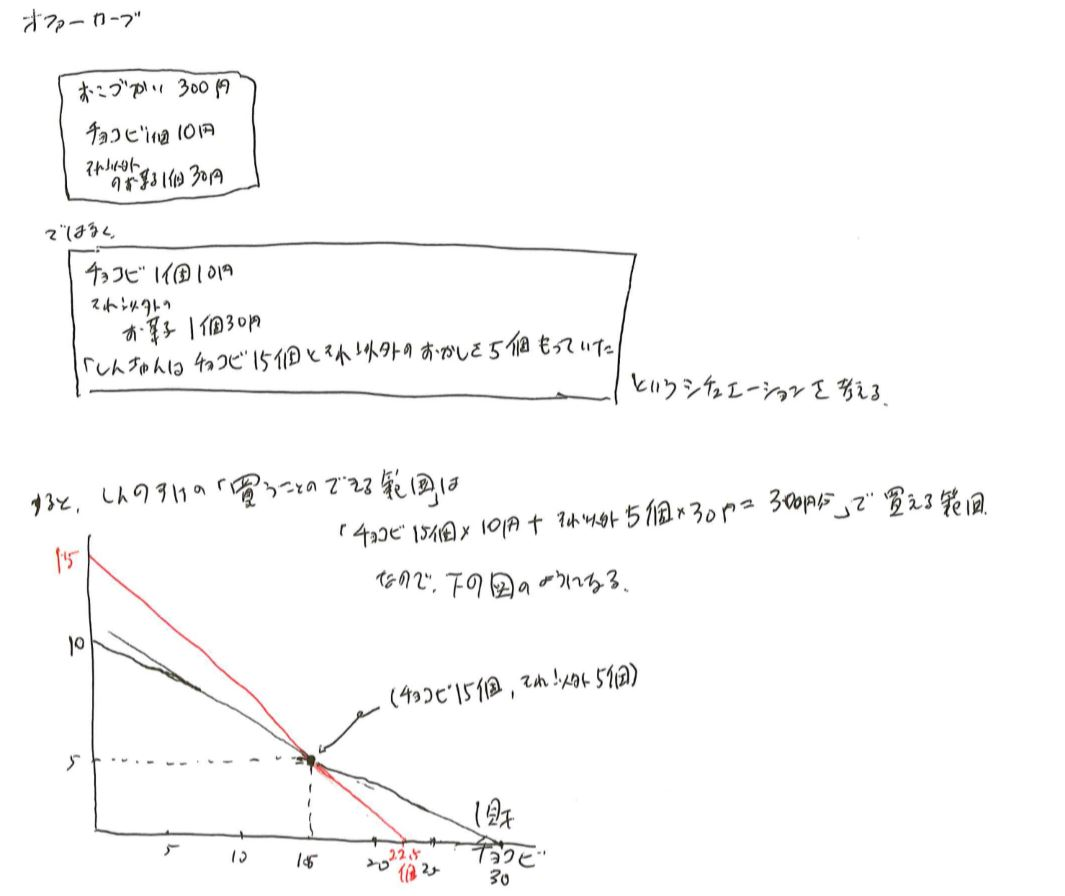 オファーカーブ
おこづかい 300円
チョコビ1個 10円
それ以外
のお菓子1個 30円
ではなく、
チョコビ 1個10円
それ以外の
お菓子 1個30円
「しんちゃんは チョコビ15個とそれ以外のおかしを5個もっていた
というシチュエーションを考える.
すると, しんのすけの「買うことのできる範囲」は
「チョコビ15個×10円+それ以外5個×30円=300円分」で買える範囲.
なので, 下の図のようになる.
15
10
(チョコビ15個, それ以外5個)
5
5 10 15 20 22.5個 25 30
チョコビ